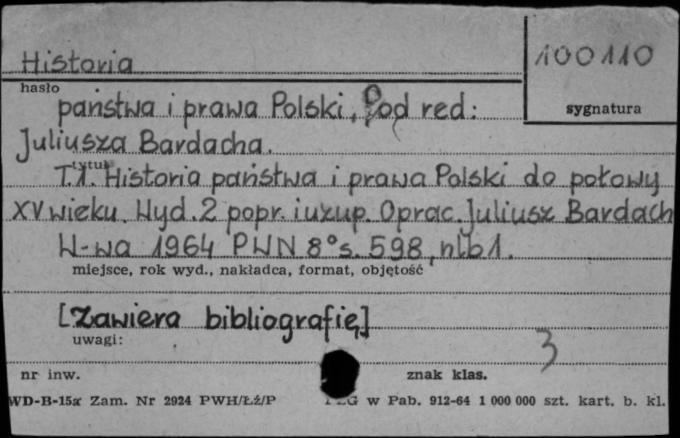 Historia
100110
hasło
sygnatura
państwa i prawa Polski. Pod red:
Juliusza Bardacha.
tytuł
T.1. Historia państwa i prawa Polski do połowy
XV wieku. Wyd. 2 popr. i uzup. Oprac. Juliusz Bardach
W-wa 1964 PWN 8° s. 598, nlb 1.
miejsce, rok wyd., nakładca, format, objętość
[Zawiera bibliografię]
uwagi:
3
nr inw.
znak klas.
WD-B-15a Zam. Nr 2924 PWH/Łź/P
w Pab. 912-64 1 000 000 szt. kart. b. kl.